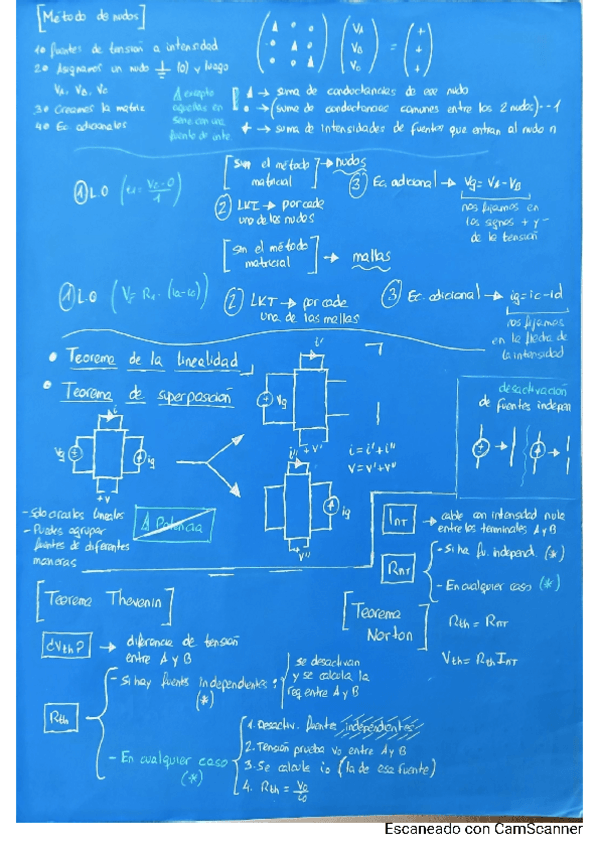 [Método de nudos]
1º fuentes de tensión a intensidad
2º Asignamos un nudo (0) y luego
VA, VB, VC
3º Creamos la matriz
4º Ec. adicionales
VA
VB
VC
=
+
+
+
Δ excepto
aquellas en
serie con una
fuente de inte.
Δ → suma de conductancias de ese nudo
• → (suma de conductancias comunes entre los 2 nudos)·-1
+ → suma de intensidades de fuentes que entran al nudo n
[Sin el método matricial] → nudos
① L.O
② LKI → por cada
uno de los nudos
③ Ec. adicional → Vg = VA - VB
nos fijamos en
los signos + y -
de la tensión
[Sin el método matricial] → mallas
① L.O
② LKT → por cada
una de las mallas
③ Ec. adicional → ig = ic - id
nos fijamos
en la flecha de
la intensidad
• Teorema de la linealidad
• Teorema de superposición
i
Vg
ig
+ V -
i'
Vg
+ V' -
i''
ig
V''
i = i' + i''
V = V' + V''
desactivación
de fuentes indepen
- Sólo circuitos lineales
- Puedes agrupar
fuentes de diferentes
maneras
Potencia
INT → cable con intensidad nula
entre los terminales A y B
RNT
- Si ha fu. independ. (*)
- En cualquier caso (*)
[Teorema Thevenin]
[Teorema
Norton]
Rth = RNT
Vth = Rth INT
¿Vth? → diferencia de tensión
entre A y B
Rth
- Si hay fuentes independientes :
(*)
se desactivan
y se calcula la
req entre A y B
- En cualquier caso
(*)
1. Desactiv. fuentes independientes
2. Tensión prueba Vo entre A y B
3. Se calcula io (la de esa fuente)
4. Rth = Vo/io
Escaneado con CamScanner